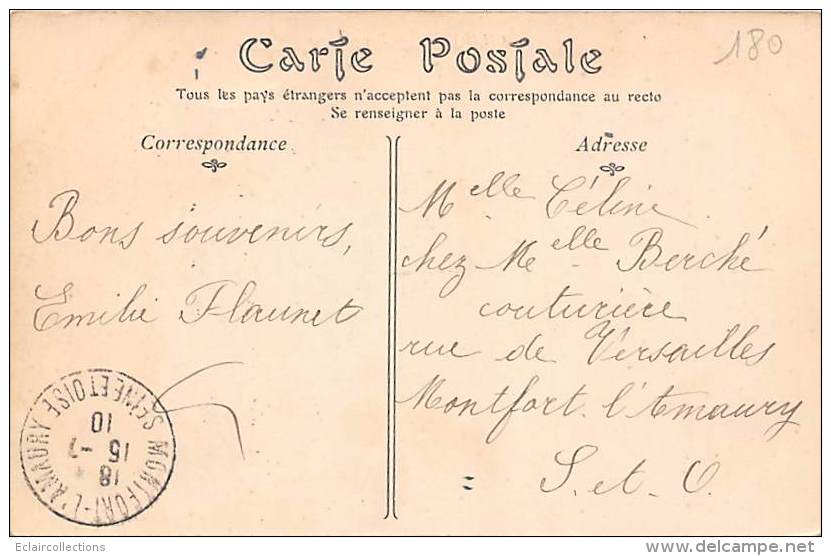 180
Carte Postale
Tous les pays étrangers n'acceptent pas la correspondance au recto
Se renseigner à la poste
Correspondance
Bons souvenirs,
Emilie Flaunet
MONTFORT-L'AMAURY
SEINE ET OISE
18
15 -7
10
Adresse
Melle Céline
chez Melle Berché
couturière
rue de Versailles
Montfort l'Amaury
S. et. O.
Eclaircollections
delcampe.net